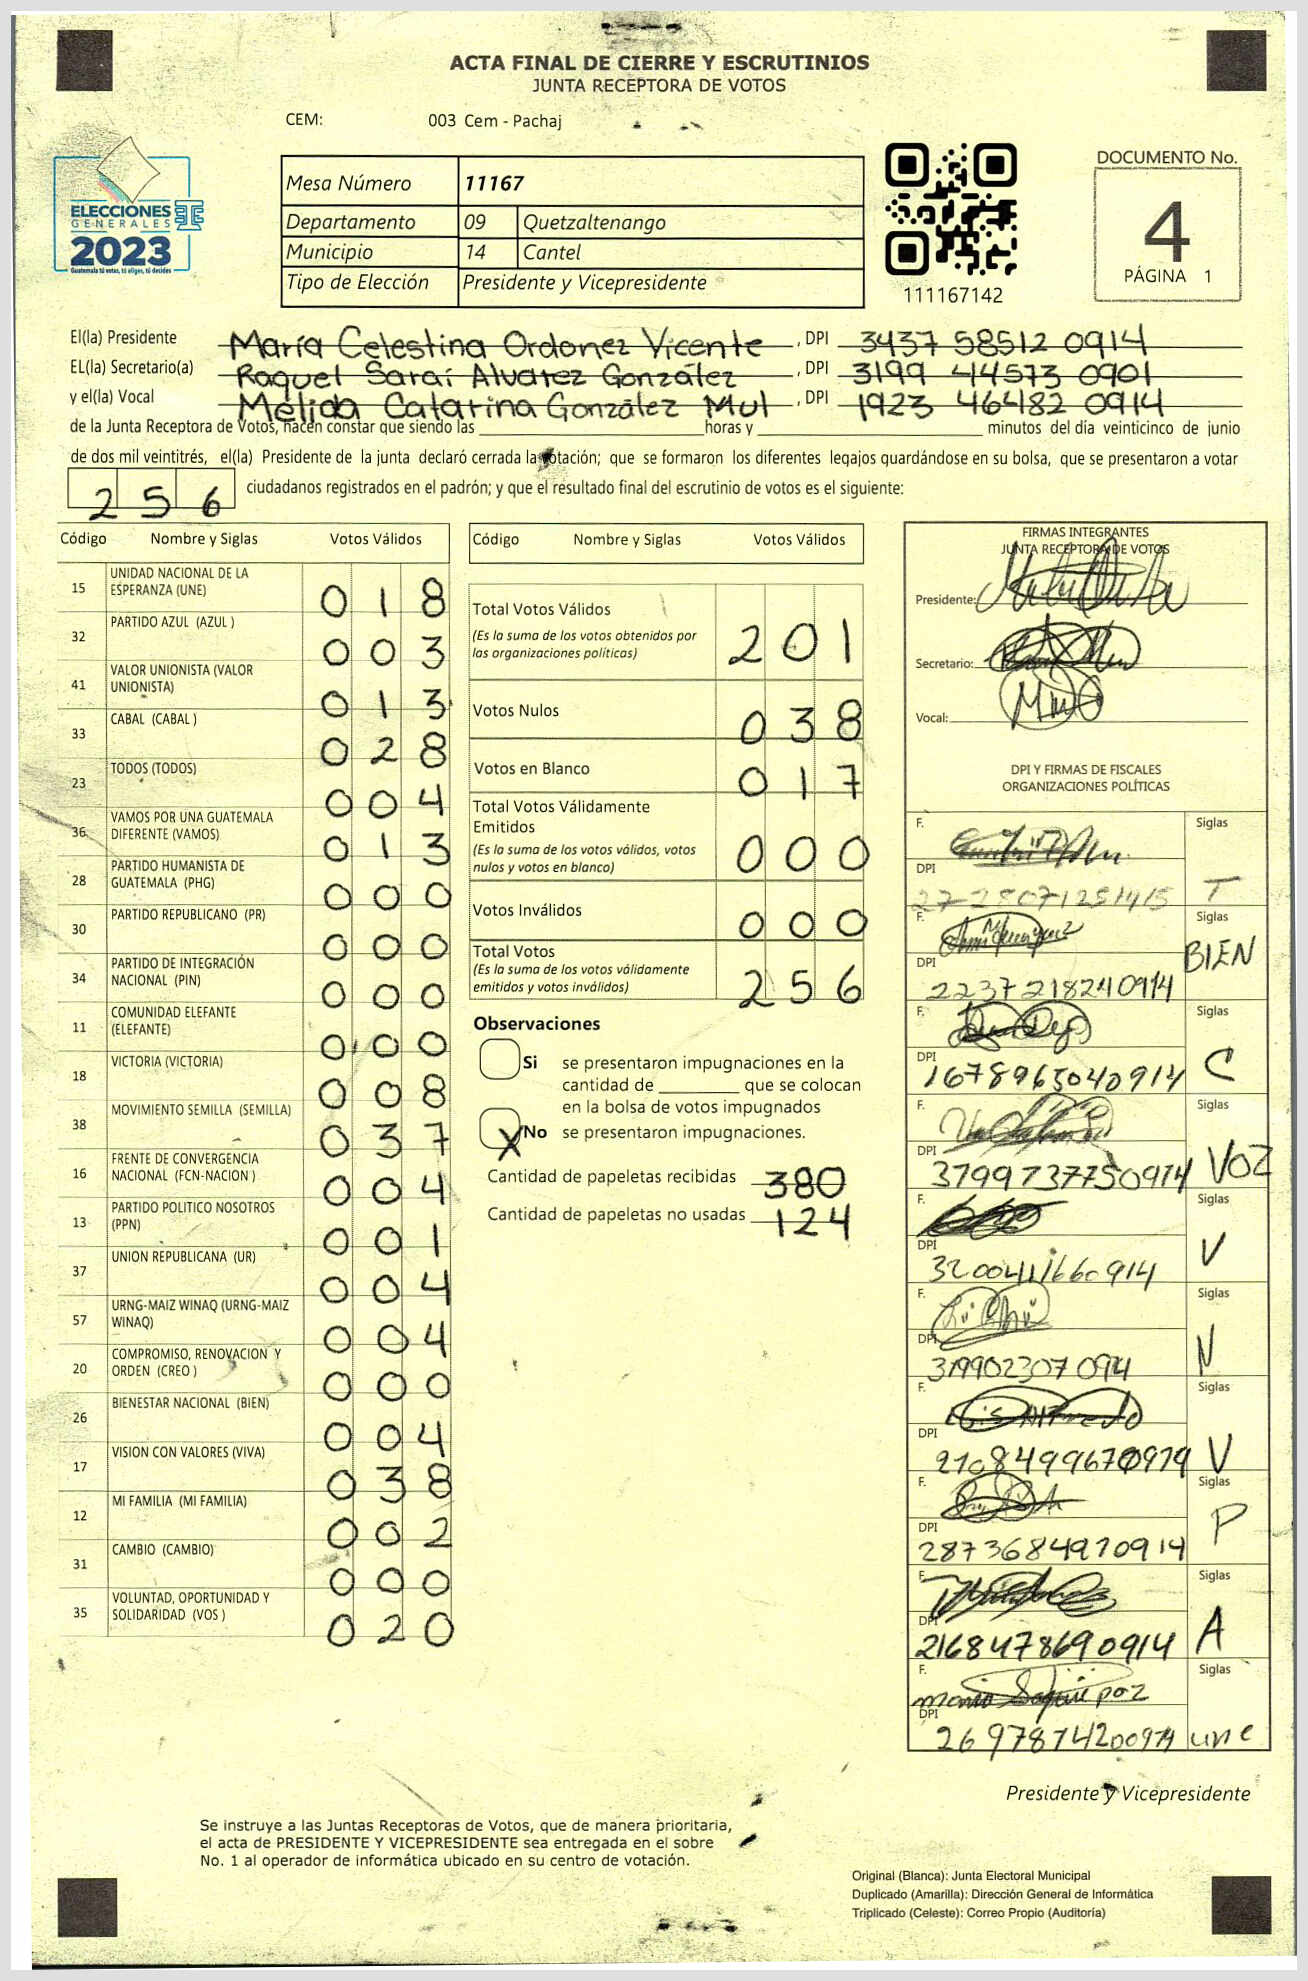 ACTA FINAL DE CIERRE Y ESCRUTINIOS
JUNTA RECEPTORA DE VOTOS
CEM: 003 Cem - Pachaj
ELECCIONES
GENERALES
2023
Guatemala tú votas, tú eliges, tú decides
Mesa Número 11167
Departamento 09 Quetzaltenango
Municipio 14 Cantel
Tipo de Elección Presidente y Vicepresidente
111167142
DOCUMENTO No.
4
PÁGINA 1
El(la) Presidente María Celestina Ordonez Vicente , DPI 3437 58512 0914
EL(la) Secretario(a) Raquel Saraí Alvarez González , DPI 3199 44573 0901
y el(la) Vocal Mélida Catarina González Mul , DPI 1923 46482 0914
de la Junta Receptora de Votos, hacen constar que siendo las horas y minutos del día veinticinco de junio
de dos mil veintitrés, el(la) Presidente de la junta declaró cerrada la votación; que se formaron los diferentes legajos guardándose en su bolsa, que se presentaron a votar
256 ciudadanos registrados en el padrón; y que el resultado final del escrutinio de votos es el siguiente:
Código Nombre y Siglas Votos Válidos
15 UNIDAD NACIONAL DE LA
ESPERANZA (UNE) 018
32 PARTIDO AZUL (AZUL ) 003
41 VALOR UNIONISTA (VALOR
UNIONISTA) 013
33 CABAL (CABAL ) 028
23 TODOS (TODOS) 004
36 VAMOS POR UNA GUATEMALA
DIFERENTE (VAMOS) 013
28 PARTIDO HUMANISTA DE
GUATEMALA (PHG) 000
30 PARTIDO REPUBLICANO (PR) 000
34 PARTIDO DE INTEGRACIÓN
NACIONAL (PIN) 000
11 COMUNIDAD ELEFANTE
(ELEFANTE) 000
18 VICTORIA (VICTORIA) 008
38 MOVIMIENTO SEMILLA (SEMILLA) 037
16 FRENTE DE CONVERGENCIA
NACIONAL (FCN-NACION ) 004
13 PARTIDO POLITICO NOSOTROS
(PPN) 001
37 UNION REPUBLICANA (UR) 004
57 URNG-MAIZ WINAQ (URNG-MAIZ
WINAQ) 004
20 COMPROMISO, RENOVACION Y
ORDEN (CREO ) 000
26 BIENESTAR NACIONAL (BIEN) 004
17 VISION CON VALORES (VIVA) 038
12 MI FAMILIA (MI FAMILIA) 002
31 CAMBIO (CAMBIO) 000
35 VOLUNTAD, OPORTUNIDAD Y
SOLIDARIDAD (VOS ) 020
Código Nombre y Siglas Votos Válidos
Total Votos Válidos
(Es la suma de los votos obtenidos por
las organizaciones políticas) 201
Votos Nulos 038
Votos en Blanco 017
Total Votos Válidamente
Emitidos
(Es la suma de los votos válidos, votos
nulos y votos en blanco) 000
Votos Inválidos 000
Total Votos
(Es la suma de los votos válidamente
emitidos y votos inválidos) 256
Observaciones
Si se presentaron impugnaciones en la
cantidad de que se colocan
en la bolsa de votos impugnados
X No se presentaron impugnaciones.
Cantidad de papeletas recibidas 380
Cantidad de papeletas no usadas 124
FIRMAS INTEGRANTES
JUNTA RECEPTORA DE VOTOS
Presidente:
Secretario:
Vocal:
DPI Y FIRMAS DE FISCALES
ORGANIZACIONES POLÍTICAS
F. Siglas
DPI T
F. Siglas
DPI BIEN
2237218240914
F. Siglas
DPI C
1678965040914
F. Siglas
DPI VOZ
3799737750914
F. Siglas
DPI V
3200411660914
F. Siglas
DPI N
319902307094
F. Siglas
DPI V
F. Siglas
DPI P
2873684970914
F. Siglas
DPI A
2168478690914
F. Siglas
DPI
une
Presidente y Vicepresidente
Se instruye a las Juntas Receptoras de Votos, que de manera prioritaria,
el acta de PRESIDENTE Y VICEPRESIDENTE sea entregada en el sobre
No. 1 al operador de informática ubicado en su centro de votación.
Original (Blanca): Junta Electoral Municipal
Duplicado (Amarilla): Dirección General de Informática
Triplicado (Celeste): Correo Propio (Auditoría)